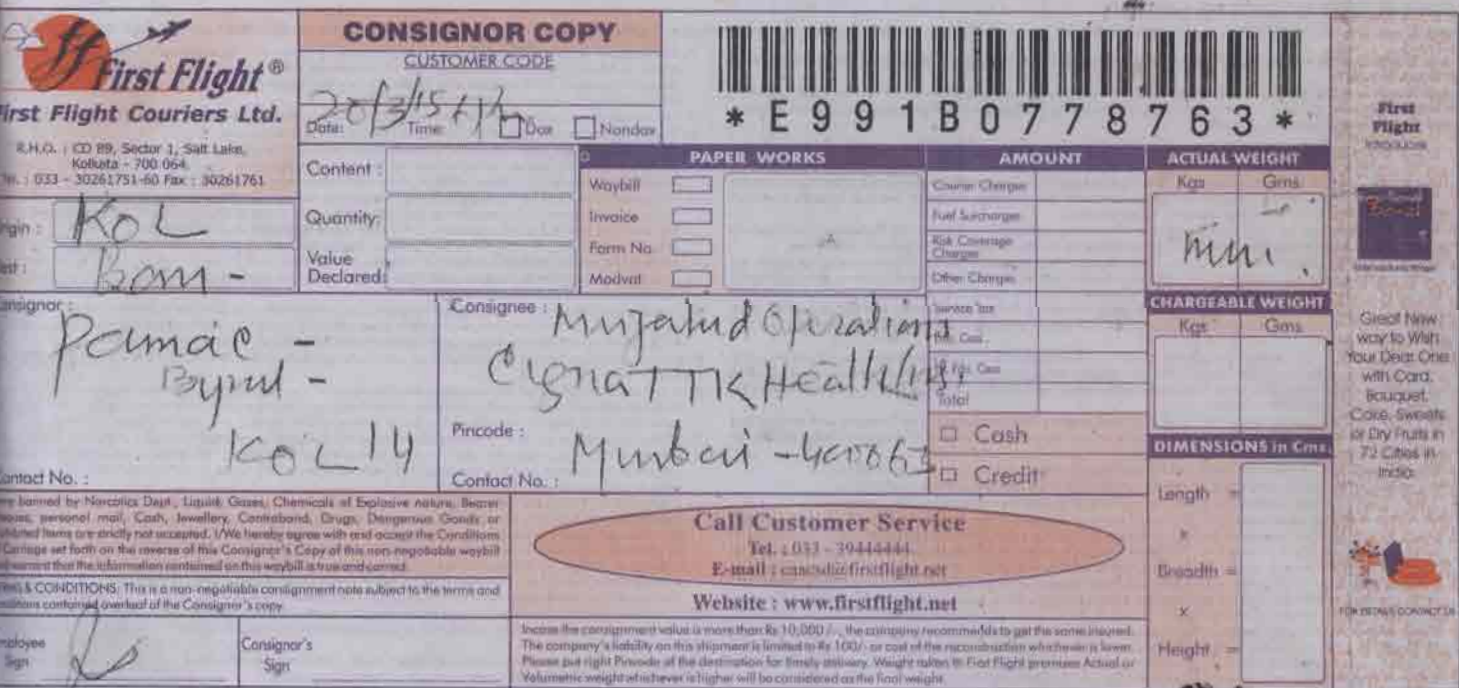 First Flight®
First Flight Couriers Ltd.
R.H.O. : CD 89, Sector 1, Salt Lake,
Kolkata - 700 064.
Tel. : 033 - 30261751-60 Fax : 30261761
CONSIGNOR COPY
CUSTOMER CODE
20/3/15
Date: Time: Dox Nondox
*E991B0778763*
KOL
Bom -
Content :
Quantity:
Value
Declared:
PAPER WORKS
Waybill
Invoice
Form No.
Modvat
AMOUNT
Courier Charges
Fuel Surcharges
Risk Coverage
Charges
Other Charges
Service Tax
Total
Cash
Credit
ACTUAL WEIGHT
Kgs Gms.
CHARGEABLE WEIGHT
Kgs Gms.
DIMENSIONS in Cms.
Length =
x
Breadth =
x
Height =
Consignor :
KOL 14
Contact No. :
Consignee :
Operations
Cigna TTK Health
Pincode :
Mumbai - 400063
Contact No. :
are banned by Narcotics Dept., Liquid, Gases, Chemicals of Explosive nature, Bearer
personal mail, Cash, Jewellery, Contraband, Drugs, Dangerous Goods or
items are strictly not accepted. I/We hereby agree with and accept the Conditions
Carriage set forth on the reverse of this Consignor's Copy of this non-negotiable waybill
warrant that the information contained on this waybill is true and correct.
& CONDITIONS: This is a non-negotiable consignment note subject to the terms and
contained overleaf of the Consignor's copy.
Sign
Consignor's
Sign
Call Customer Service
Tel. : 033 - 39444444
E-mail :
Website : www.firstflight.net
Incase the consignment value is more than Rs 10,000/-, the company recommends to get the same insured.
The company's liability on this shipment is limited to Rs 100/- or cost of the reconstruction whichever is lower.
Please put right Pincode of the destination for timely delivery. Weight taken in First Flight premises Actual or
Volumetric weight whichever is higher will be considered as the final weight.
First
Flight
Introduces
Great New
way to Wish
Your Dear One
with Card,
Bouquet,
Cake, Sweets
or Dry Fruits in
72 Cities in
India
FOR DETAILS CONTACT US